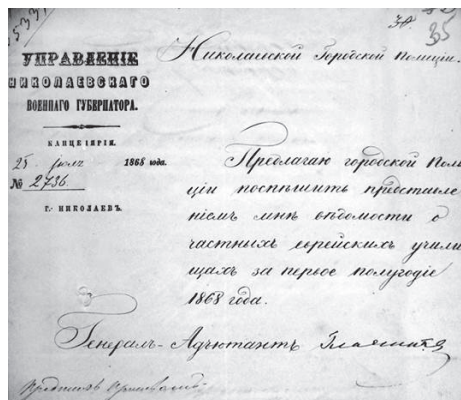 35
УПРАВЛЕНІЕ
НИКОЛАЕВСКАГО
ВОЕННАГО ГУБЕРНАТОРА.
КАНЦЕЛЯРІЯ.
25 Іюль 1868 года.
№ 2736.
Г. НИКОЛАЕВЪ.
Николаевской Городской Полиціи.
Предлагаю городской Поли
ціи поспѣшить представле
ніемъ мнѣ вѣдомости о
частныхъ еврейскихъ учили
щахъ за первое полугодіе
1868 года.
Генералъ-Адъютантъ